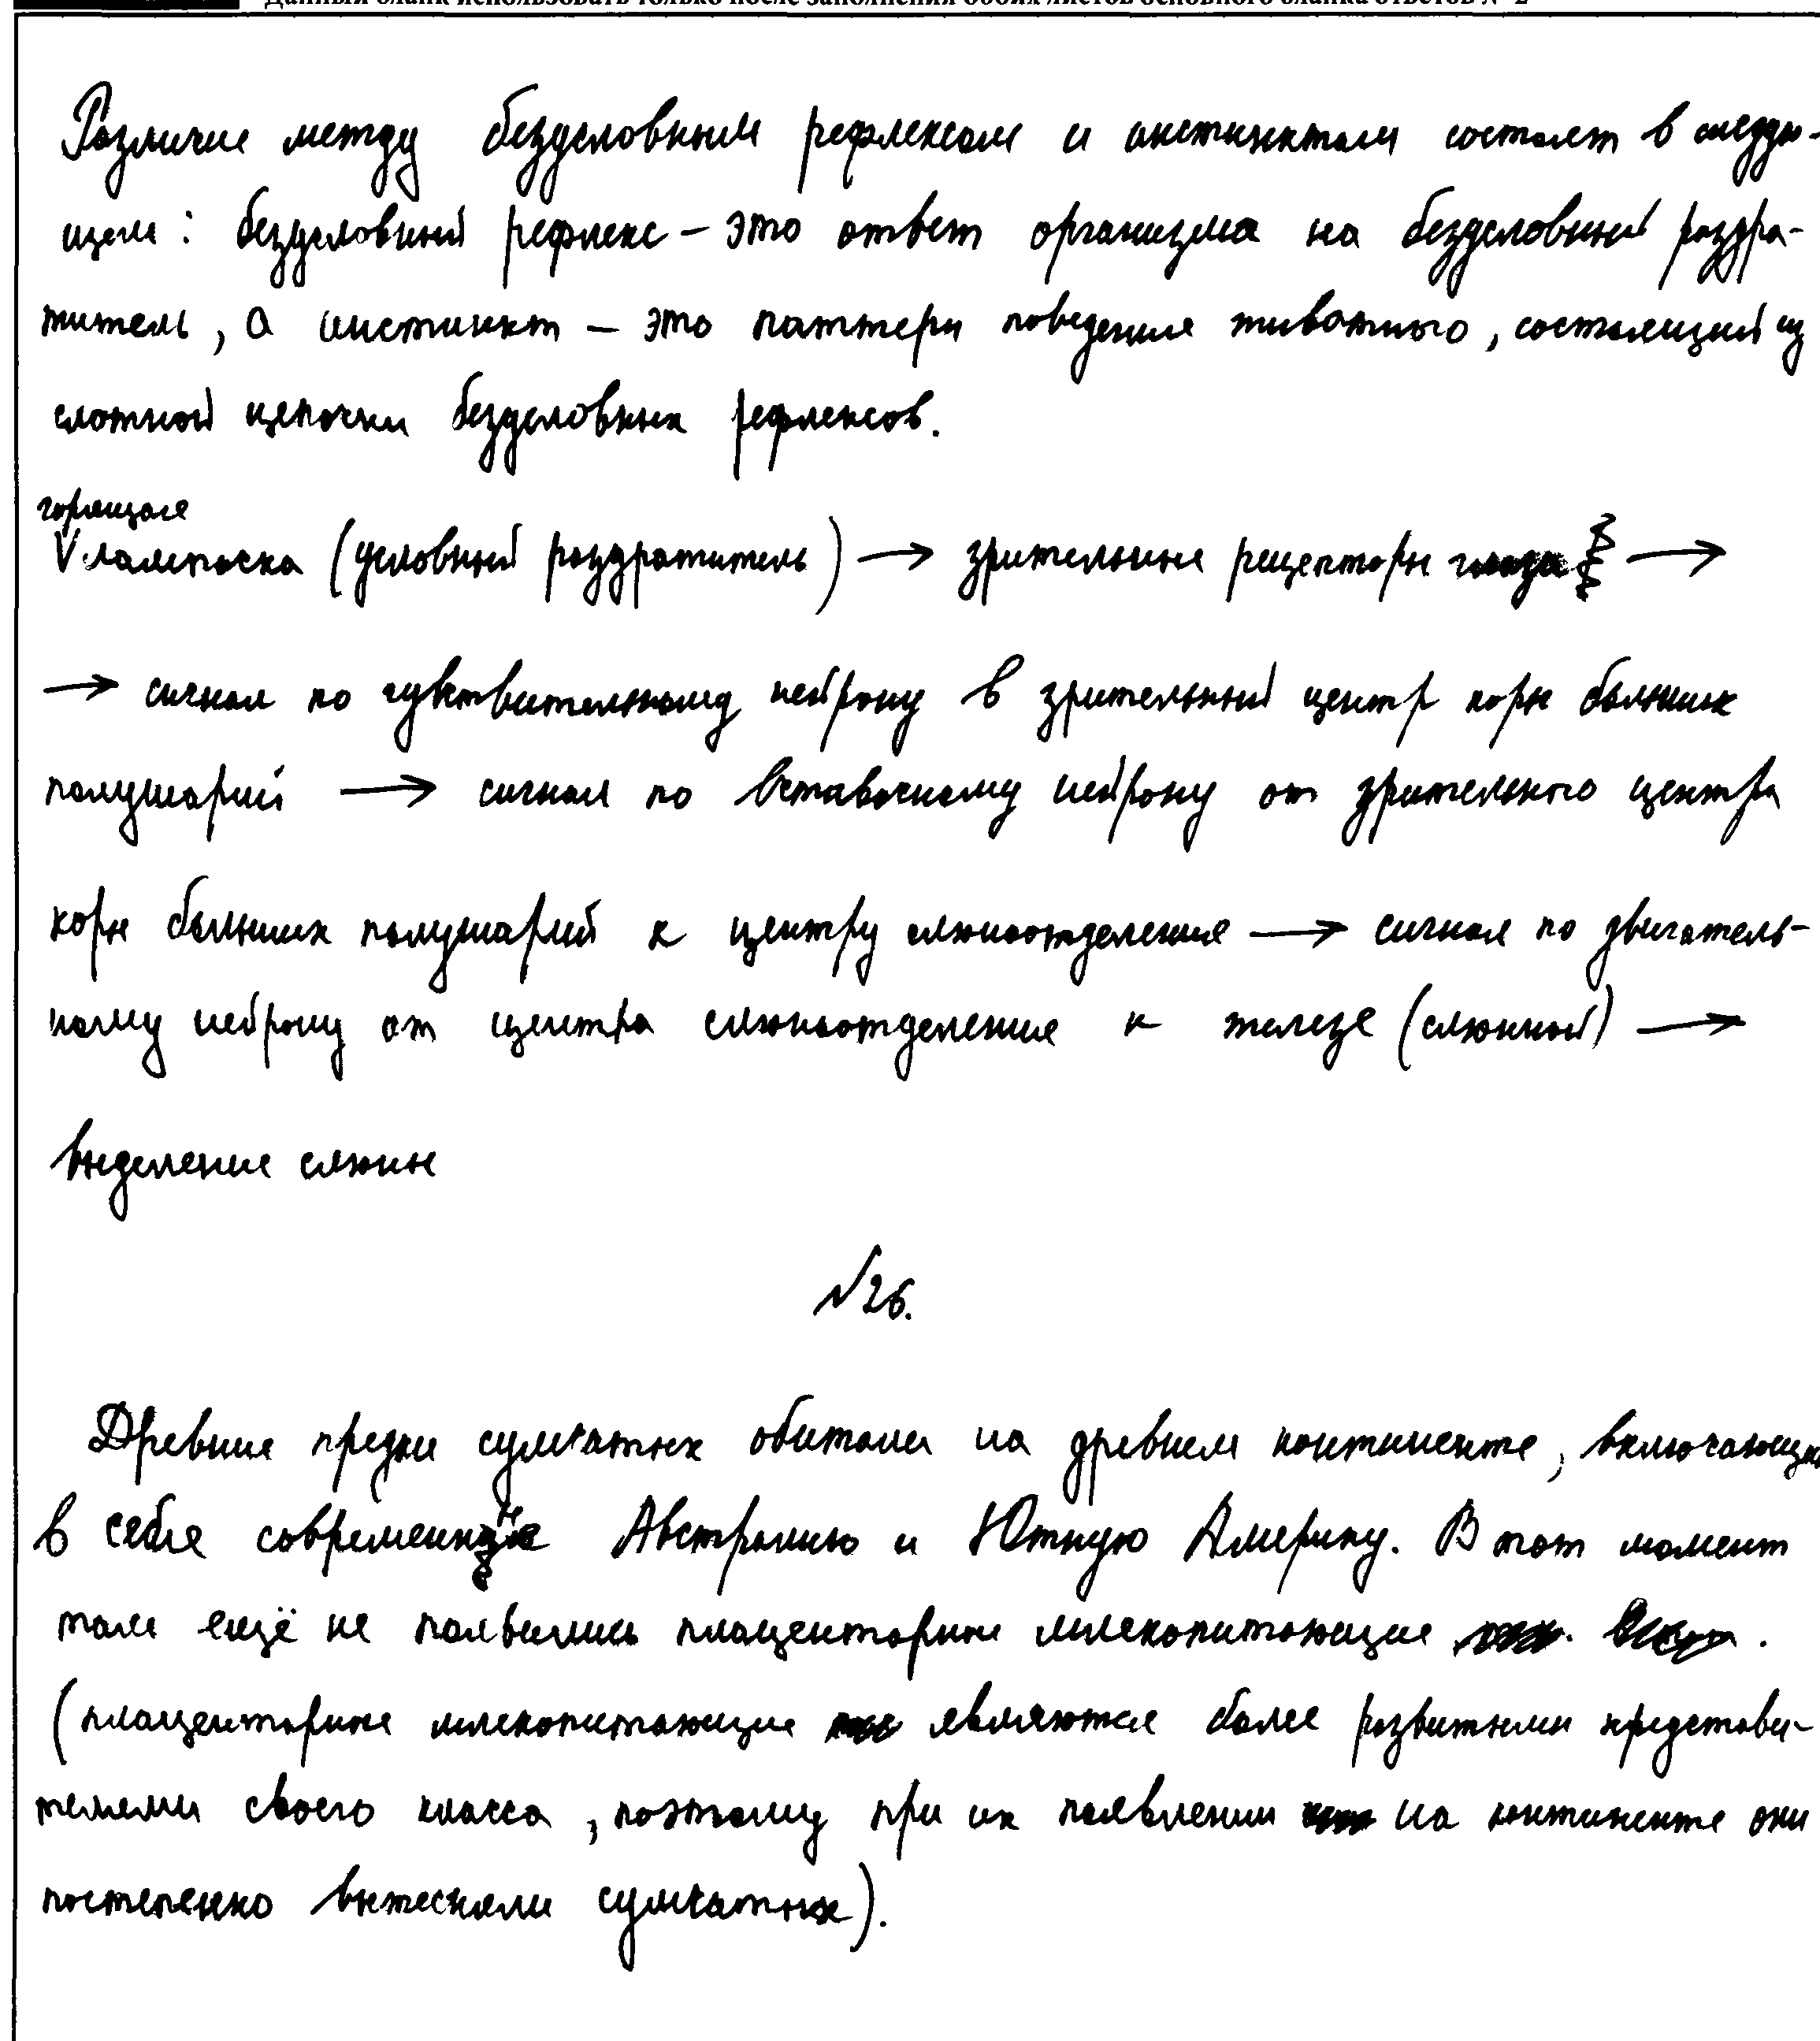 Данный бланк использовать только после заполнения обоих листов основного бланка ответов № 2
Различие между безусловным рефлексом и инстинктом состоят в следую-
щем: безусловный рефлекс – это ответ организма на безусловный раздра-
житель, а инстинкт – это паттерн поведения животного, состоящий из
сложной цепочки безусловных рефлексов.
горящая
V лампочка (условный раздражитель) → зрительные рецепторы глаза →
→ сигнал по чувствительному нейрону в зрительный центр коры больших
полушарий → сигнал по вставочному нейрону от зрительного центра
коры больших полушарий к центру слюноотделения → сигнал по двигатель-
ному нейрону от центра слюноотделения к железе (слюнной) →
выделение слюны
№26.
Древние предки сумчатых обитали на древнем континенте, включающем
в себя современные Австралию и Южную Америку. В тот момент
там ещё не появились плацентарные млекопитающие .
(плацентарные млекопитающие являются более развитыми представи-
телями своего класса, поэтому при их появлении на континенте они
постепенно вытесняли сумчатых).